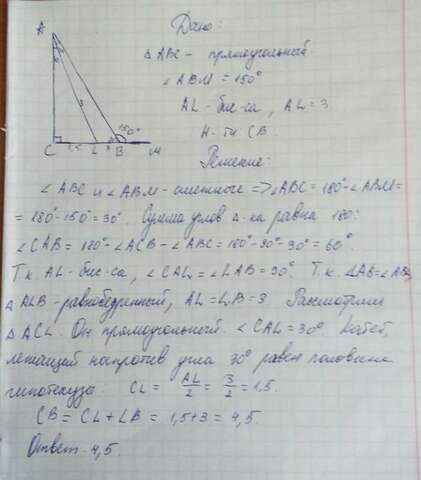 Дано:
A
△ ABC - прямоугольный.
∠ ABM = 150°
AL - бис-са, AL = 3
3
Н-ти CB.
150°
C 1,5 L 3 B M
Решение:
∠ ABC и ∠ ABM - смежные => ∠ABC = 180° - ∠ABM =
= 180° - 150° = 30°. Сумма углов △-ка равна 180:
∠CAB = 180° - ∠ACB - ∠ABC = 180° - 90° - 30° = 60°.
Т.к. AL - бис-са, ∠CAL = ∠LAB = 30°. Т.к.
△ ALB - равнобедренный, AL = LB = 3. Рассмотрим
△ ACL. Он прямоугольный. ∠ CAL = 30°. Катет,
лежащий напротив угла 30° равен половине
гипотенузы: CL = AL/2 = 3/2 = 1,5.
CB = CL + LB = 1,5 + 3 = 4,5.
Ответ: 4,5.